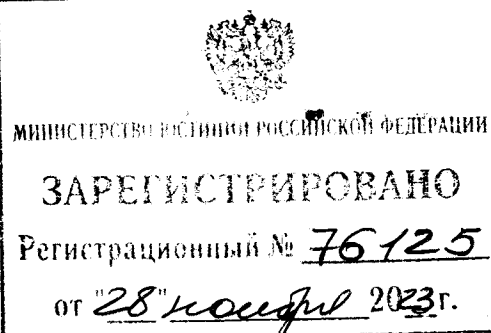 МИНИСТЕРСТВО ЮСТИЦИИ РОССИЙСКОЙ ФЕДЕРАЦИИ
ЗАРЕГИСТРИРОВАНО
Регистрационный № 76125
от "28" ноября 2023 г.